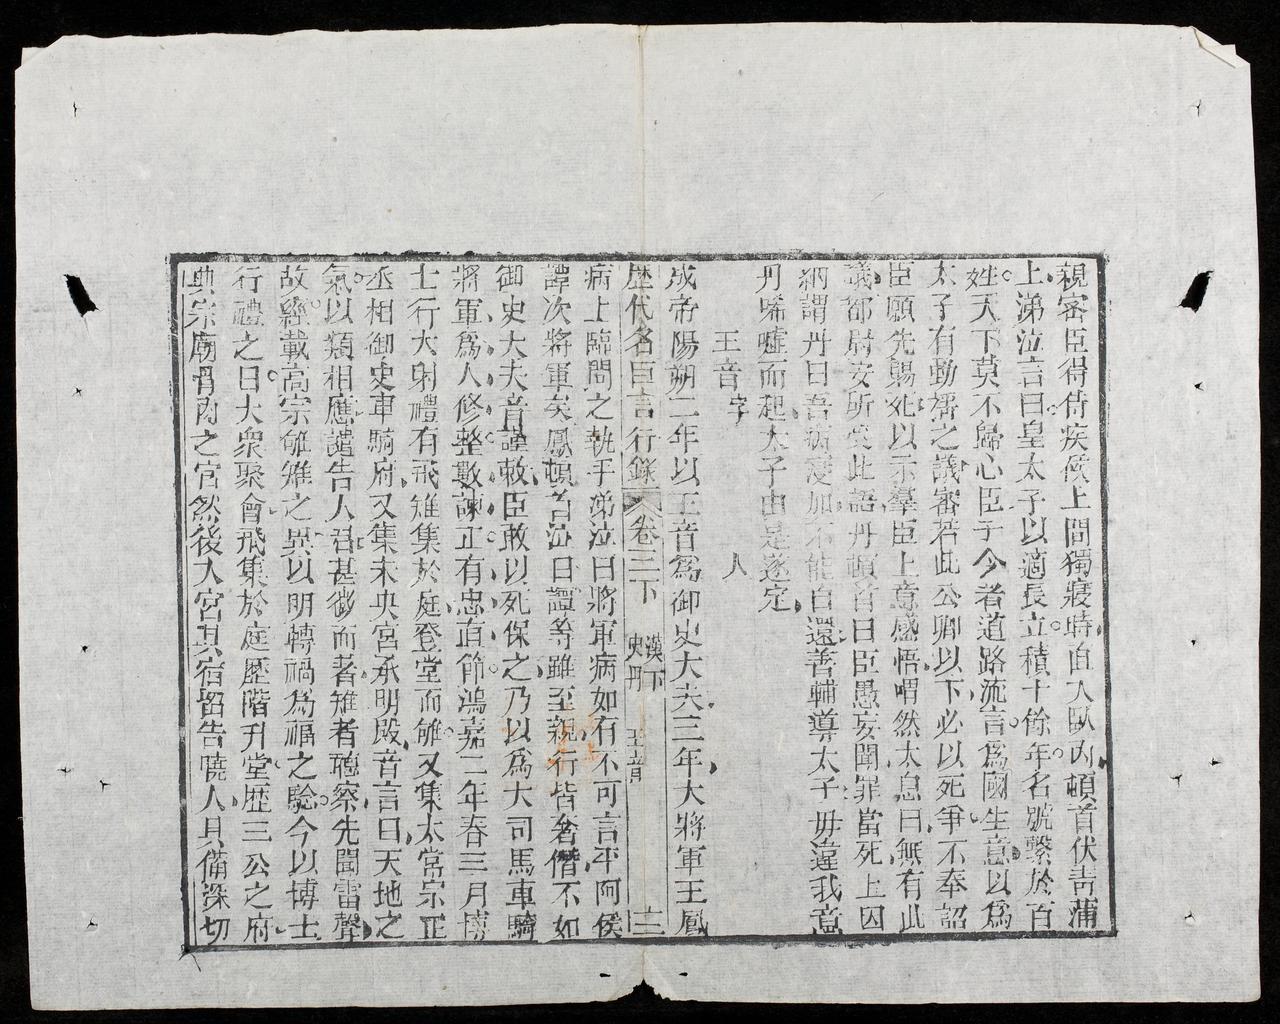 親密臣得侍疾候上間獨寢時直入臥內頓首伏青蒲
上涕泣言曰皇太子以適長立積十餘年名號繫於百
姓天下莫不歸心臣子今者道路流言爲國生意以爲
太子有動搖之議審若此公卿以下必以死爭不奉詔
臣願先賜死以示羣臣上意感悟喟然太息曰無有此
議都尉安所受此語丹頓首曰臣愚妄聞罪當死上因
納謂丹曰吾病寖加不能自還善輔導太子毋違我意
丹唏噓而起太子由是遂定
王音字 人
成帝陽朔二年以王音爲御史大夫三年大將軍王鳳
歷代名臣言行錄 卷三下 漢下 史丹 王音 十二
病上臨問之執手涕泣曰將軍病如有不可言平阿侯
譚次將軍矣鳳頓首泣曰譚等雖至親行皆奢僭不如
御史大夫音謹敕臣敢以死保之乃以爲大司馬車騎
將軍爲人修整數諫正有忠直節鴻嘉二年春三月博
士行大射禮有飛雉集於庭登堂而雊又集太常宗正
丞相御史車騎府又集未央宮承明殿音言曰天地之
氣以類相應譴告人君甚微而著雉者聽察先聞雷聲
故經載高宗雊雉之異以明轉禍爲福之驗今以博士
行禮之日大衆聚會飛集於庭歷階升堂歷三公之府
典宗廟骨肉之官然後入宮其宿留告曉人具備深切